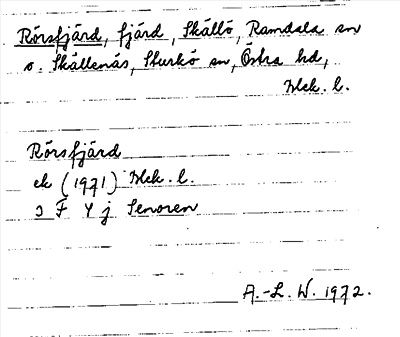 Rörsfjärd, fjärd, Skällö, Ramdala sn
o. Skällenäs, Sturkö sn, Östra hd,
Blek. l.
Rörsfjärd
ek (1971) Blek. l.
ɔ F Y j Senoren
A.-L. W. 1972.